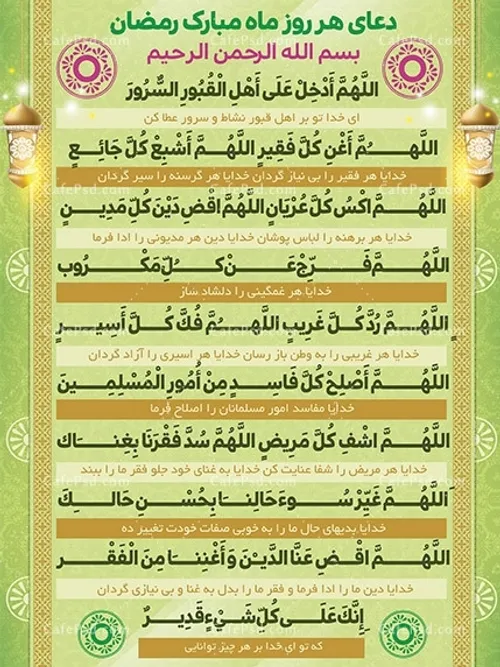 دعای هر روز ماه مبارک رمضان
بسم الله الرحمن الرحیم
اللَّهُمَّ أَدْخِلْ عَلَى أَهْلِ الْقُبُورِ السُّرُورَ
ای خدا تو بر اهل قبور نشاط و سرور عطا کن
اللَّهُمَّ أَغْنِ كُلَّ فَقِيرٍ اللَّهُمَّ أَشْبِعْ كُلَّ جَائِعٍ
خدایا هر فقیر را بی نیاز گردان خدایا هر گرسنه را سیر گردان
اللَّهُمَّ اكْسُ كُلَّ عُرْيَانٍ اللَّهُمَّ اقْضِ دَيْنَ كُلِّ مَدِينٍ
خدایا هر برهنه را لباس پوشان خدایا دین هر مدیونی را ادا فرما
اللَّهُمَّ فَرِّجْ عَنْ كُلِّ مَكْرُوبٍ
خدایا هر غمگینی را دلشاد ساز
اللَّهُمَّ رُدَّ كُلَّ غَرِيبٍ اللَّهُمَّ فُكَّ كُلَّ أَسِيرٍ
خدایا هر غریبی را به وطن باز رسان خدایا هر اسیری را آزاد گردان
اللَّهُمَّ أَصْلِحْ كُلَّ فَاسِدٍ مِنْ أُمُورِ الْمُسْلِمِينَ
خدایا مفاسد امور مسلمانان را اصلاح فرما
اللَّهُمَّ اشْفِ كُلَّ مَرِيضٍ اللَّهُمَّ سُدَّ فَقْرَنَا بِغِنَاكَ
خدایا هر مریض را شفا عنایت کن خدایا به غنای خود جلو فقر ما را ببند
اَللَّهُمَّ غَيِّرْ سُوءَ حَالِنَا بِحُسْنِ حَالِكَ
خدایا بدیهای حال ما را به خوبی صفات خودت تغییر ده
اللَّهُمَّ اقْضِ عَنَّا الدَّيْنَ وَأَغْنِنَا مِنَ الْفَقْرِ
خدایا دین ما را ادا فرما و فقر ما را بدل به غنا و بی نیازی گردان
إِنَّكَ عَلَى كُلِّ شَيْءٍ قَدِيرٌ
که تو ای خدا بر هر چیز توانایی
CafePsd.com